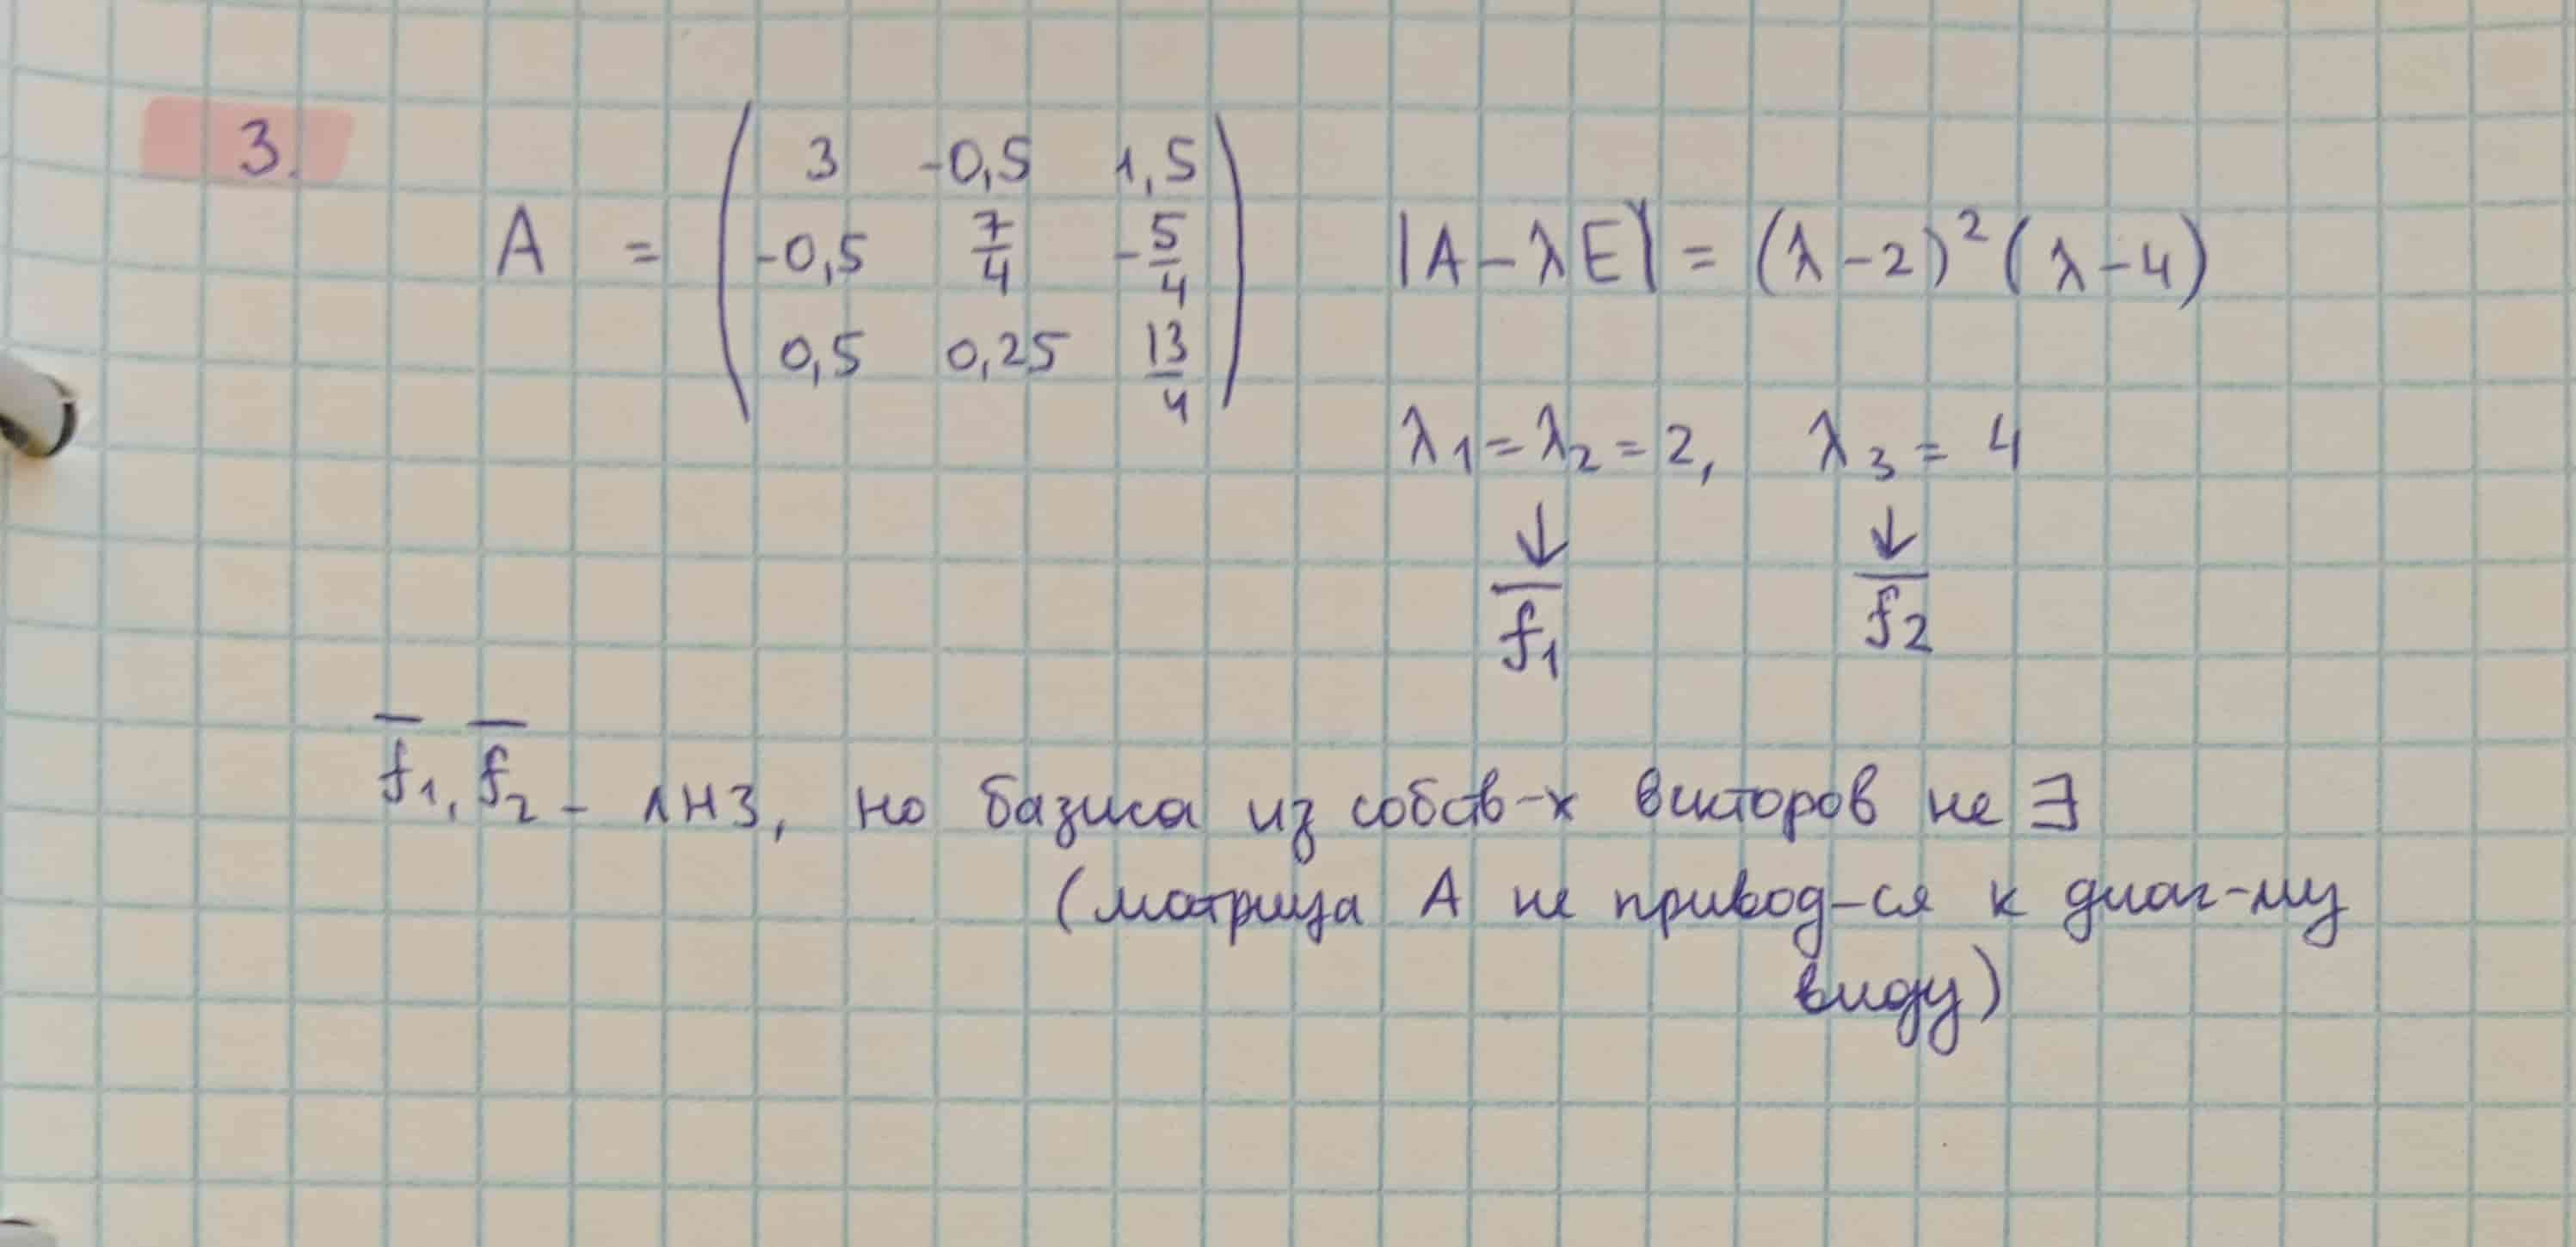 3.
A = ( 3 -0,5 1,5
-0,5 7/4 -5/4
0,5 0,25 13/4 )
|A - λE| = (λ-2)²(λ-4)
λ₁ = λ₂ = 2, λ₃ = 4
↓ ↓
f̅₁ f̅₂
f̅₁, f̅₂ - ЛНЗ, но базиса из собств-х векторов не ∃
(матрица A не привод-ся к диаг-му
виду)